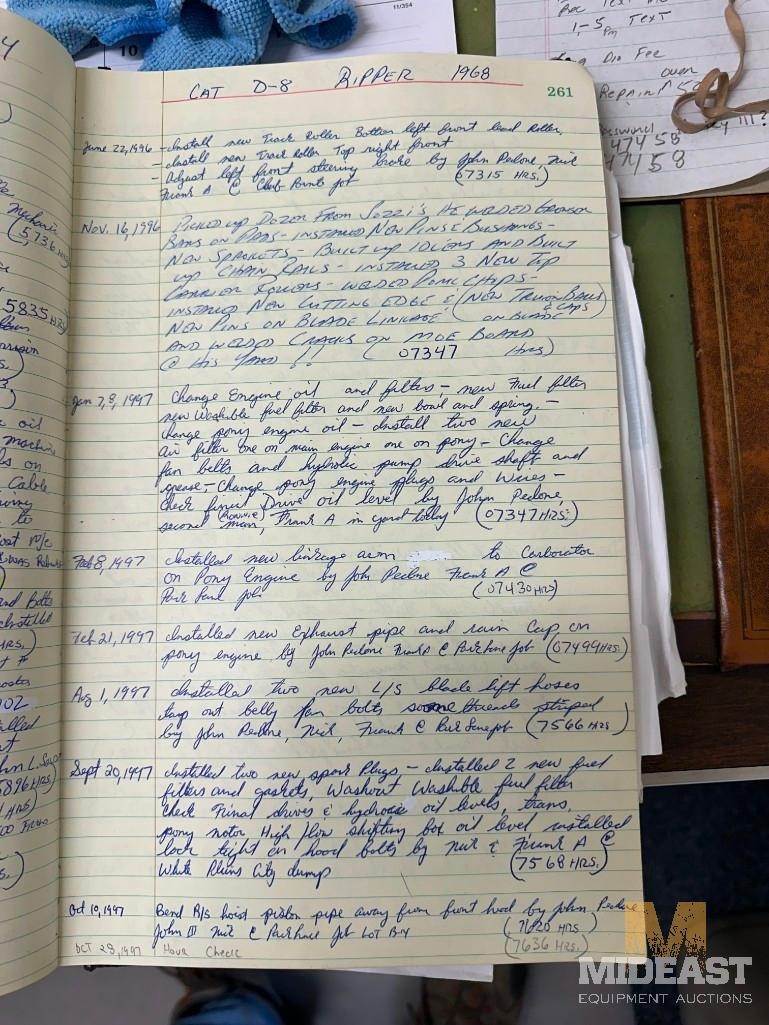 CAT D-8 RIPPER 1968
261
June 22, 1996 - Install new Track Roller Bottom left front lead Roller,
- Install new Track Roller Top right front
- Adjust left front steering brake by John Pedone, Nick
Frank A @ Club Points job (07315 HRS.)
Nov. 16, 1996 PICKED UP DOZER FROM SOZZI'S HE WELDED GROUSER
BARS ON PADS - INSTALLED NEW PINS & BUSHINGS -
NEW SPROCKETS - BUILT UP IDLERS AND BUILT
UP CHAIN RAILS - INSTALLED 3 NEW TOP
CARRIER ROLLERS - WELDED ROCK CHIPS -
INSTALLED NEW CUTTING EDGE & (NEW TRUNION BALLS
& CAPS
NEW PINS ON BLADE LINKAGE ON BLADE
AND WELDED CRACKS ON MOE BOARD
@ HIS YARD !! (07347 HRS)
Jan 7, 8, 1997 Change Engine oil and filters - new Fuel filter
new Washable fuel filter and new bowl and spring. -
change pony engine oil - Install two new
air filter one on main engine one on pony - Change
fan belts and hydrolic pump drive shaft and
grease, - Change pony engine plugs and wires -
check Final Drive oil level by John Pedone,
second man, Frank A in yard today (07347 HRS.)
Feb 8, 1997 Installed new linkage arm to Carborator
on Pony Engine by John Pedone Frank A @
job (07430 HRS)
Feb 21, 1997 Installed new Exhaust pipe and rain Cap on
pony engine by John Pedone Frank A @ job (07499 HRS.)
Aug 1, 1997 Installed two new L/S blade lift hoses
tap out belly pan bolts some threads striped
by John Pedone, Nick, Frank @ job (7566 HRS.)
Sept 20, 1997 Installed two new spark Plugs, - Installed 2 new fuel
filters and gaskets, Washout Washable fuel filter
Check Final drives & hydrolic oil levels, trans,
pony motor High flow shifting box oil level installed
lock tight on hood bolts by Nick & Frank A @
White Plains City dump (7568 HRS.)
Oct 10, 1997 Bend R/S hoist piston pipe away from front hood by John Pedone
John III Nick @ job LOT B-4 (7620 HRS
OCT 28, 1997 Hour Check (7636 HRS.)
11/354
10
1-5 pm TEXT
Fee
Repair
47458
47458
Mechanic
(5,736 HRS)
5835 HRS
oil
machine
on
Cable
to
and Bolts
Installed
John L.
5896 HRS.)
MIDEAST
EQUIPMENT AUCTIONS